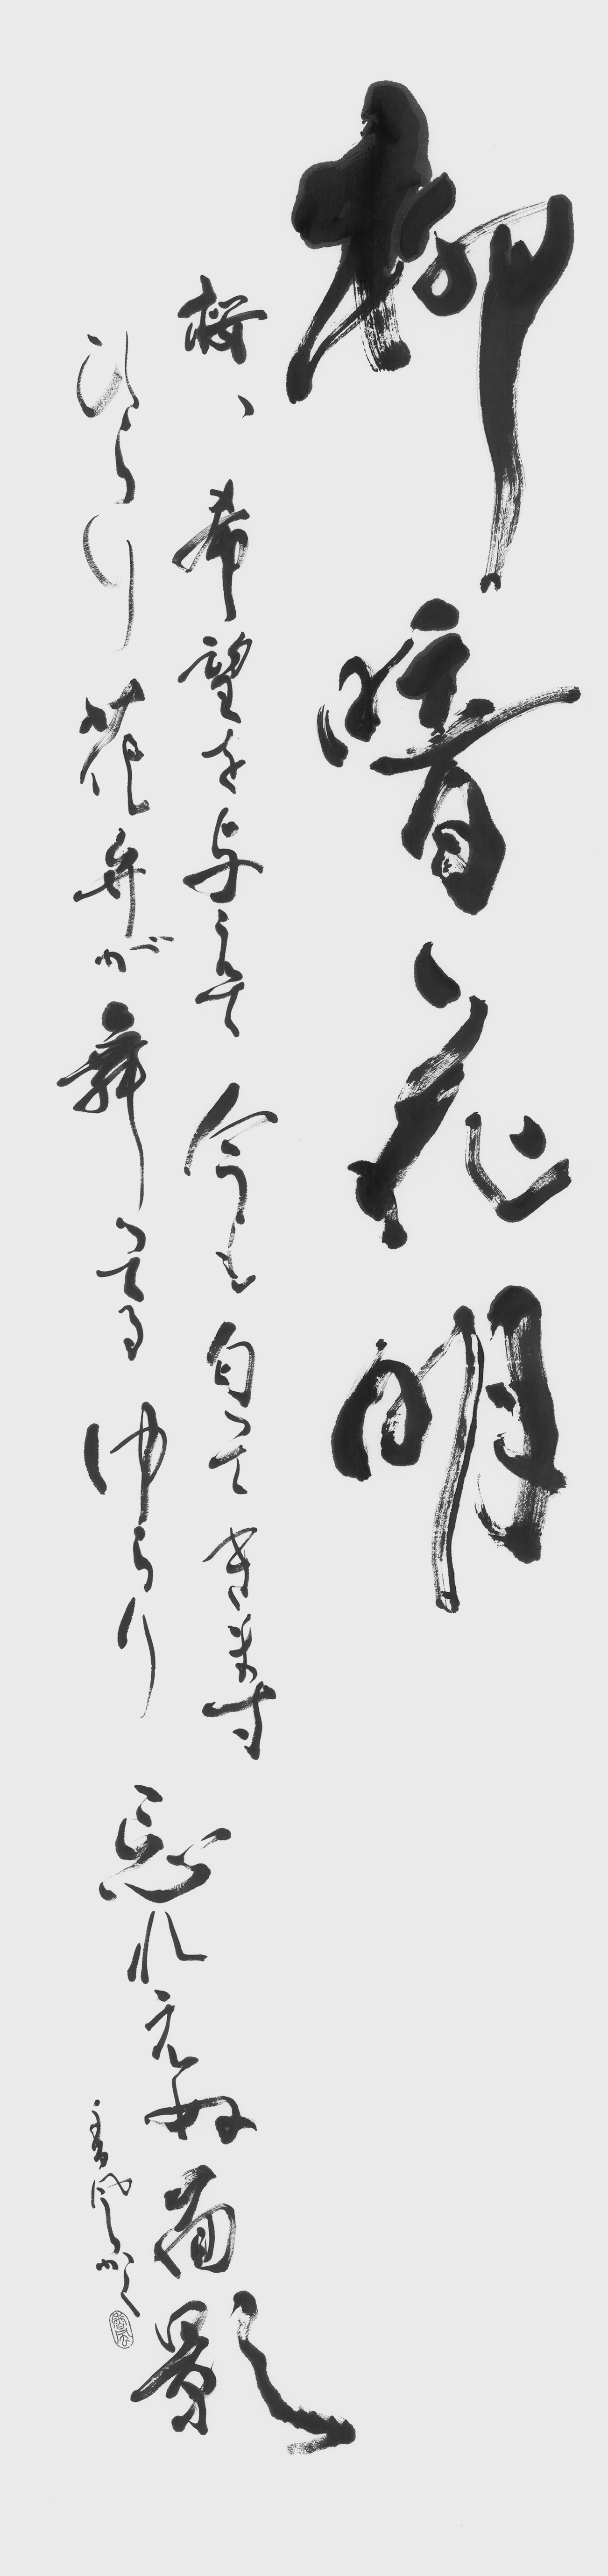 柳暗花明
桜、希望を与えて今も匂ってきます
ひらり花弁が舞ってるゆらり忘れえぬ面影
かく